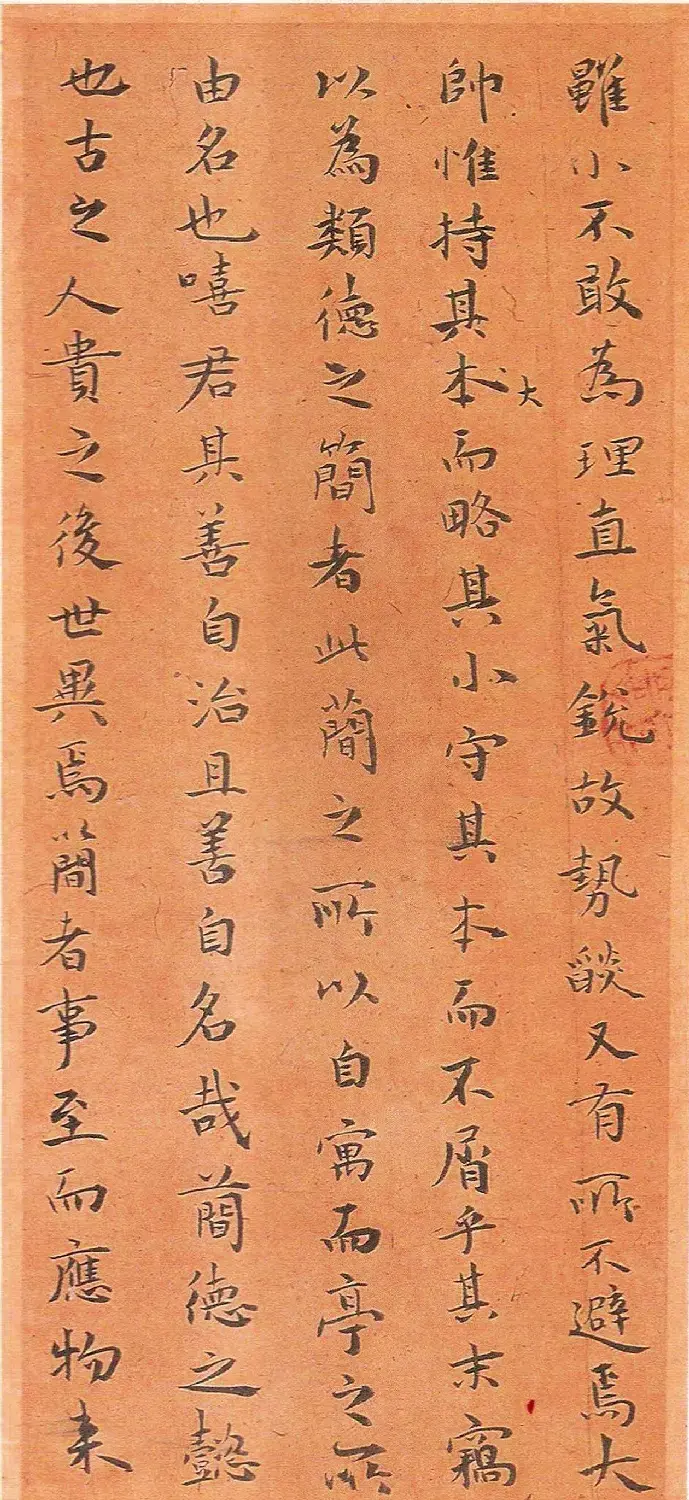 雖小不敢為理直氣銳故勢燄又有所不避焉大
帥惟持其本大而略其小守其本而不屑乎其末竊
以為類德之簡者此簡之所以自寓而亭之所
由名也嘻君其善自治且善自名哉簡德之懿
也古之人貴之後世異焉簡者事至而應物来